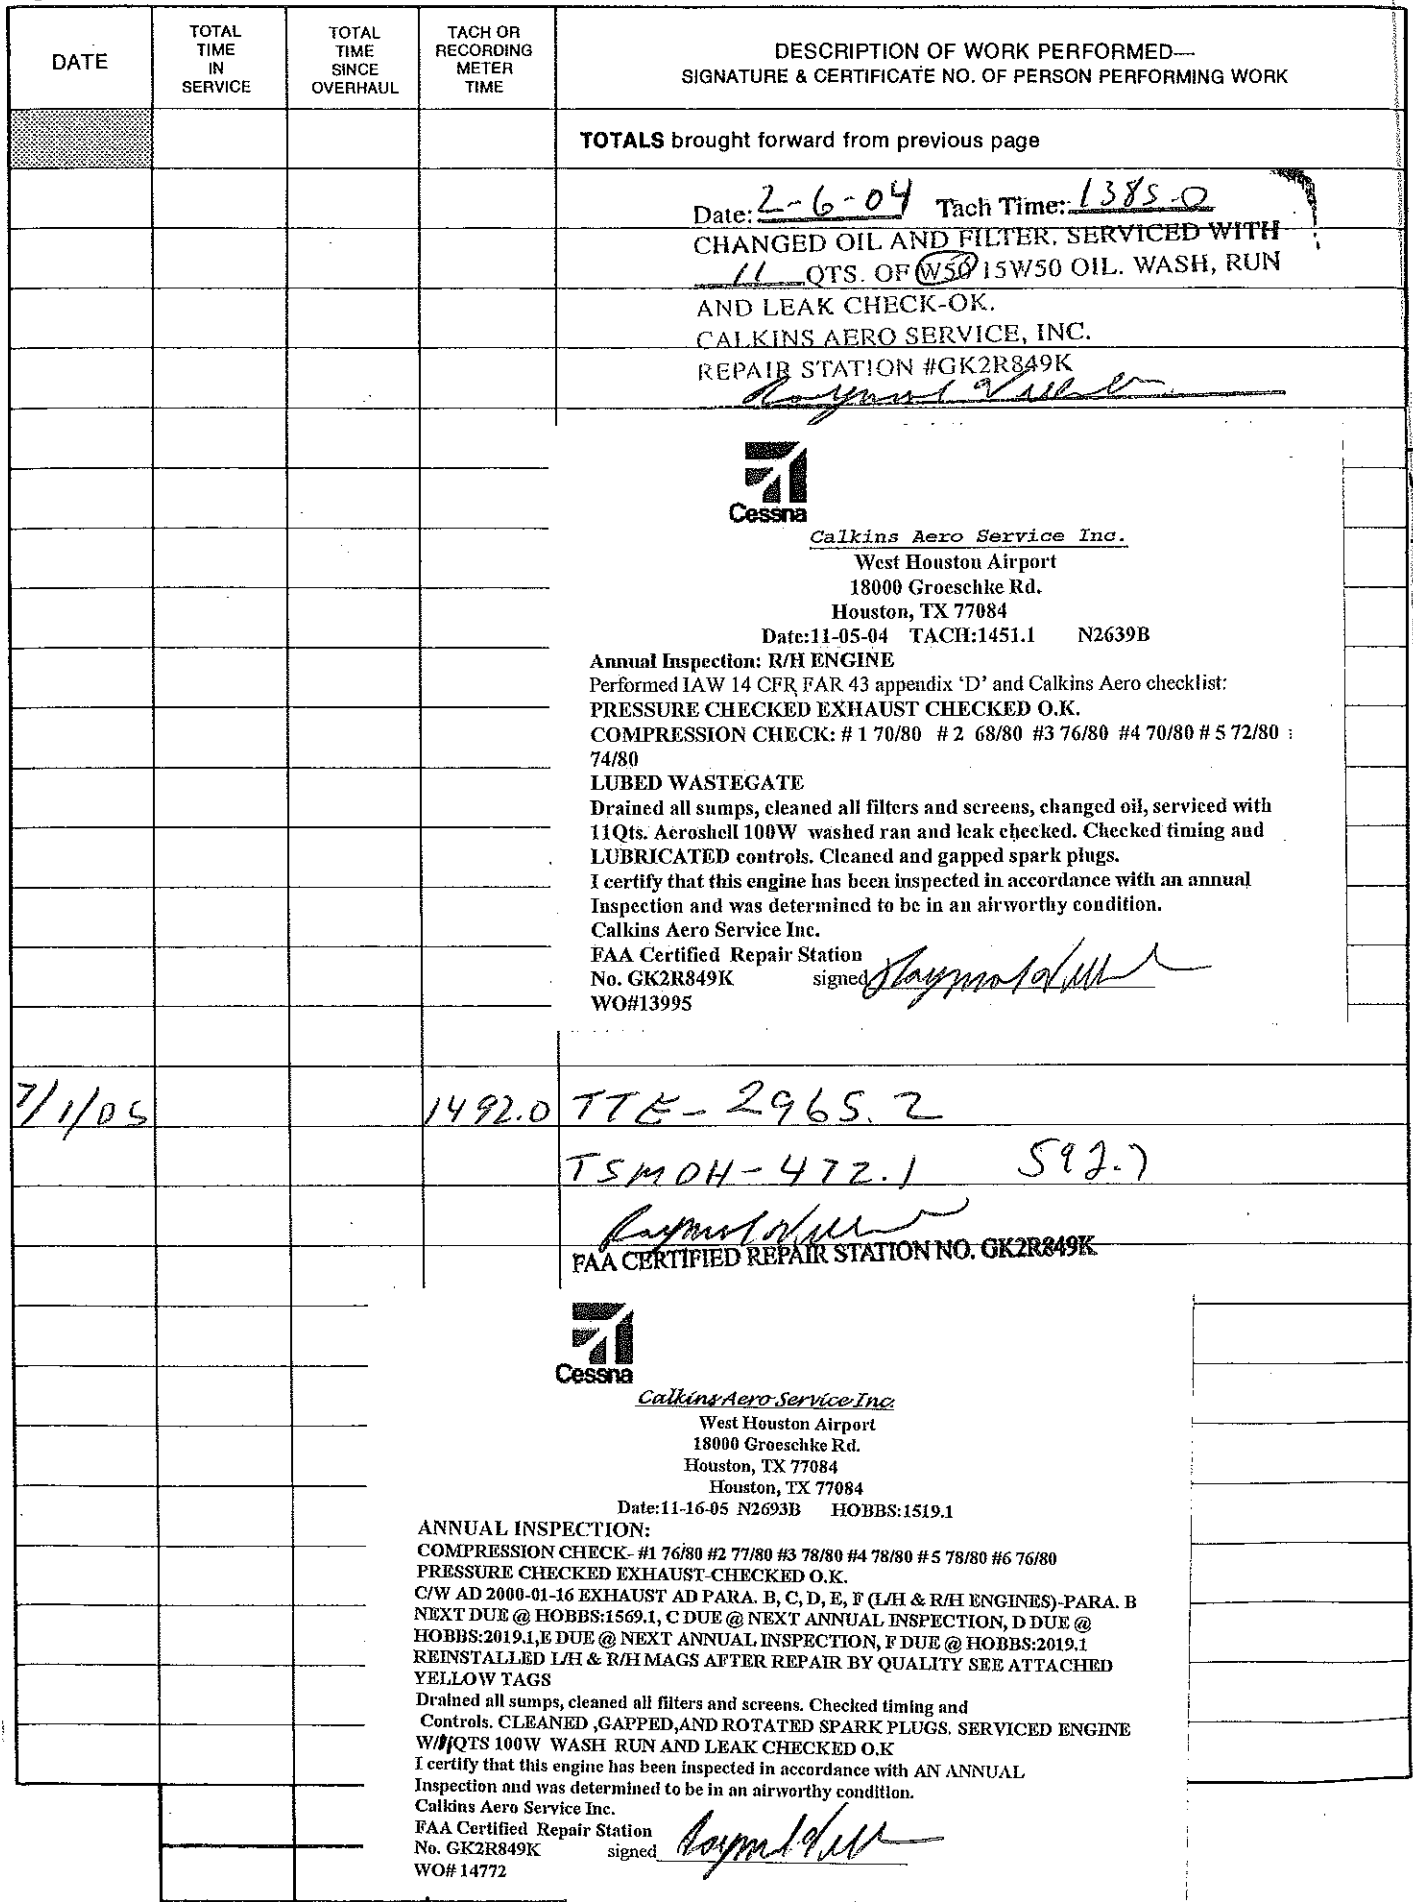 DATE
TOTAL TIME IN SERVICE
TOTAL TIME SINCE OVERHAUL
TACH OR RECORDING METER TIME
DESCRIPTION OF WORK PERFORMED—
SIGNATURE & CERTIFICATE NO. OF PERSON PERFORMING WORK
TOTALS brought forward from previous page
Date: 2-6-04 Tach Time: 1385.0
CHANGED OIL AND FILTER. SERVICED WITH
11 QTS. OF W50 15W50 OIL. WASH, RUN
AND LEAK CHECK-OK.
CALKINS AERO SERVICE, INC.
REPAIR STATION #GK2R849K
Cessna
Calkins Aero Service Inc.
West Houston Airport
18000 Groeschke Rd.
Houston, TX 77084
Date:11-05-04 TACH:1451.1 N2639B
Annual Inspection: R/H ENGINE
Performed IAW 14 CFR FAR 43 appendix ‘D’ and Calkins Aero checklist:
PRESSURE CHECKED EXHAUST CHECKED O.K.
COMPRESSION CHECK: # 1 70/80 # 2 68/80 #3 76/80 #4 70/80 # 5 72/80
74/80
LUBED WASTEGATE
Drained all sumps, cleaned all filters and screens, changed oil, serviced with
11Qts. Aeroshell 100W washed ran and leak checked. Checked timing and
LUBRICATED controls. Cleaned and gapped spark plugs.
I certify that this engine has been inspected in accordance with an annual
Inspection and was determined to be in an airworthy condition.
Calkins Aero Service Inc.
FAA Certified Repair Station
No. GK2R849K signed
WO#13995
7/1/05 1492.0 TTE- 2965.2
TSMOH- 472.1 592.7
FAA CERTIFIED REPAIR STATION NO. GK2R849K
Cessna
Calkins Aero Service Inc.
West Houston Airport
18000 Groeschke Rd.
Houston, TX 77084
Houston, TX 77084
Date:11-16-05 N2693B HOBBS:1519.1
ANNUAL INSPECTION:
COMPRESSION CHECK- #1 76/80 #2 77/80 #3 78/80 #4 78/80 # 5 78/80 #6 76/80
PRESSURE CHECKED EXHAUST-CHECKED O.K.
C/W AD 2000-01-16 EXHAUST AD PARA. B, C, D, E, F (L/H & R/H ENGINES)-PARA. B
NEXT DUE @ HOBBS:1569.1, C DUE @ NEXT ANNUAL INSPECTION, D DUE @
HOBBS:2019.1,E DUE @ NEXT ANNUAL INSPECTION, F DUE @ HOBBS:2019.1
REINSTALLED L/H & R/H MAGS AFTER REPAIR BY QUALITY SEE ATTACHED
YELLOW TAGS
Drained all sumps, cleaned all filters and screens. Checked timing and
Controls. CLEANED ,GAPPED,AND ROTATED SPARK PLUGS. SERVICED ENGINE
W/11QTS 100W WASH RUN AND LEAK CHECKED O.K
I certify that this engine has been inspected in accordance with AN ANNUAL
Inspection and was determined to be in an airworthy condition.
Calkins Aero Service Inc.
FAA Certified Repair Station
No. GK2R849K signed
WO# 14772